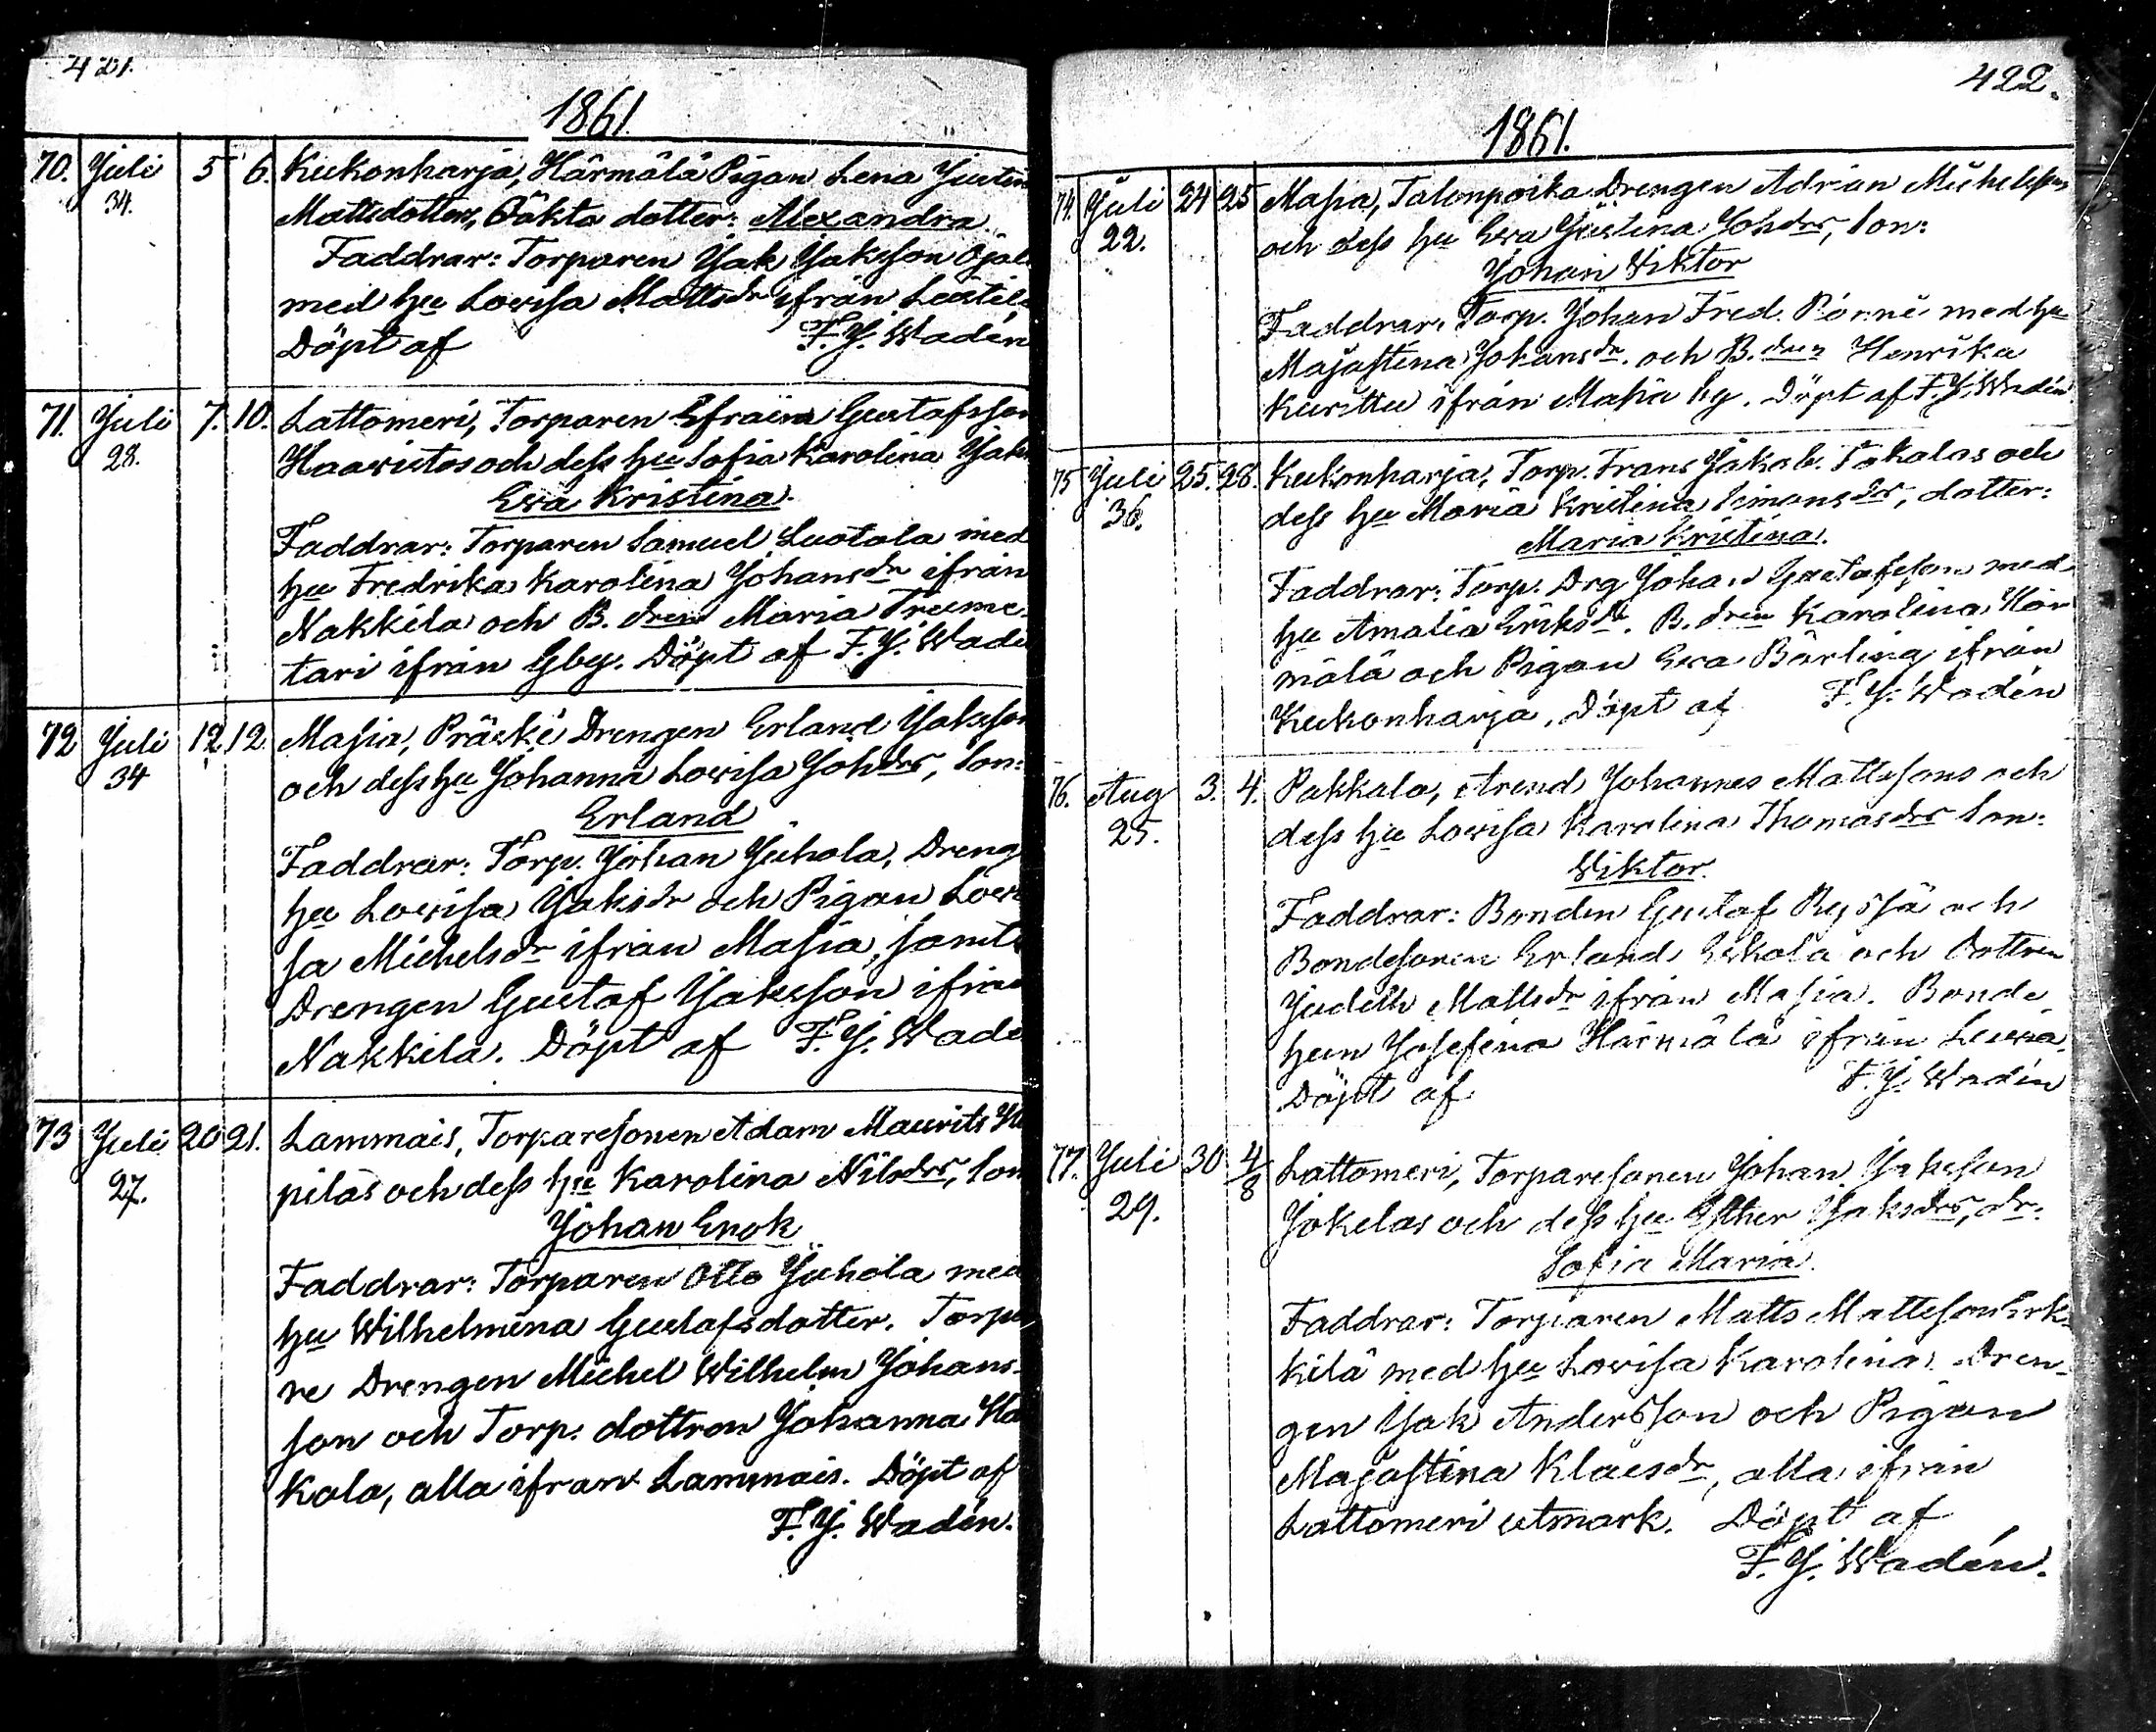 421.
1861.
70. Juli 5 6. Kukonharja, Härmälä Pigan Lena Justin
34. Mattsdotters, Oäkta dotter: Alexandra.
Faddrar: Torparen Isak Isaksson Ojala
med hu Lovisa Mattsdr ifrån Leistilä
Döpt af F. J. Wadén
71. Juli 7. 10. Lattomeri, Torparen Efraim Gustafsson
28. Haavistos och dess hu Sofia Karolina Isaks
Eva Kristina.
Faddrar: Torparen Samuel Luotola med
hu Fredrika Karolina Johansdr ifrån
Nakkila och B. dren Maria Trume-
tari ifrån Gby. Döpt af F. J. Wadé
72 Juli 12 12. Masia, Präski Drengen Erland Isaksson
34 och dess hu Johanna Lovisa Johdrs, Son:
Erland
Faddrar: Torp. Johan Juhola, Dreng
hu Lovisa Isaksdr och Pigan Lovi
sa Michelsdr ifrån Masia, samt
Drengen Gustaf Isaksson ifrån
Nakkila. Döpt af F. J. Wadé
73 Juli 20 21. Lammais, Torparesonen Adam Maurits
27. pilas och dess hu Karolina Nilsdrs, Son
Johan Enok
Faddrar: Torparen Otto Juhola med
hu Wilhelmina Gustafsdotter. Torpa
re Drengen Michel Wilhelm Johans-
son och Torp. dottren Johanna Ha
kala, alla ifrån Lammais. Döpt af
F. J. Wadén.
422.
1861.
74. Juli 24 25 Masia, Talonpoika Drengen Adrian Michelsson
22. och dess hu Eva Justina Johdrs, Son:
Johan Viktor
Faddrar, Torp. Johan Fred. Pänni med hu
Majastina Johansdr. och B. dren Henrika
Kurittu ifrån Masia by. Döpt af F. J. Wadén
75 Juli 25. 28. Kukonharja, Torp. Frans Jakob Tokalas och
36. dess hu Maria Kristina Simonsdrs, dotter:
Maria Kristina.
Faddrar: Torp. Drg Johan Gustafsson med
hu Amalia Eriksdr. B. dren Karolina Här
mälä och Pigan Eva Bärling ifrån
Kukonharja, Döpt af F. J. Wadén
76. Aug 3. 4. Pakkala, Arend Johannes Mattssons och
25. dess hu Lovisa Karolina Thomasdrs Son:
Wiktor.
Faddrar: Bonden Gustaf Ryssä och
Bondesonen Erland Eskola och Dottren
Judith Mattsdr ifrån Masia. Bonde
hun Josefina Härmälä ifrån Leuva.
Döpt af F. J. Wadén
77. Juli 30 4/8 Lattomeri, Torparesonen Johan Isaksson
29. Jokelas och dess hu Esther Isaksdrs, dr.
Sofia Maria.
Faddrar: Torparen Matts Mattsson Erk-
kilä med hu Lovisa Karolina. Dren-
gen Isak Andersson och Pigan
Majastina Klaesdr, alla ifrån
Lattomeri utmark. Döpt af
F. J. Wadén.